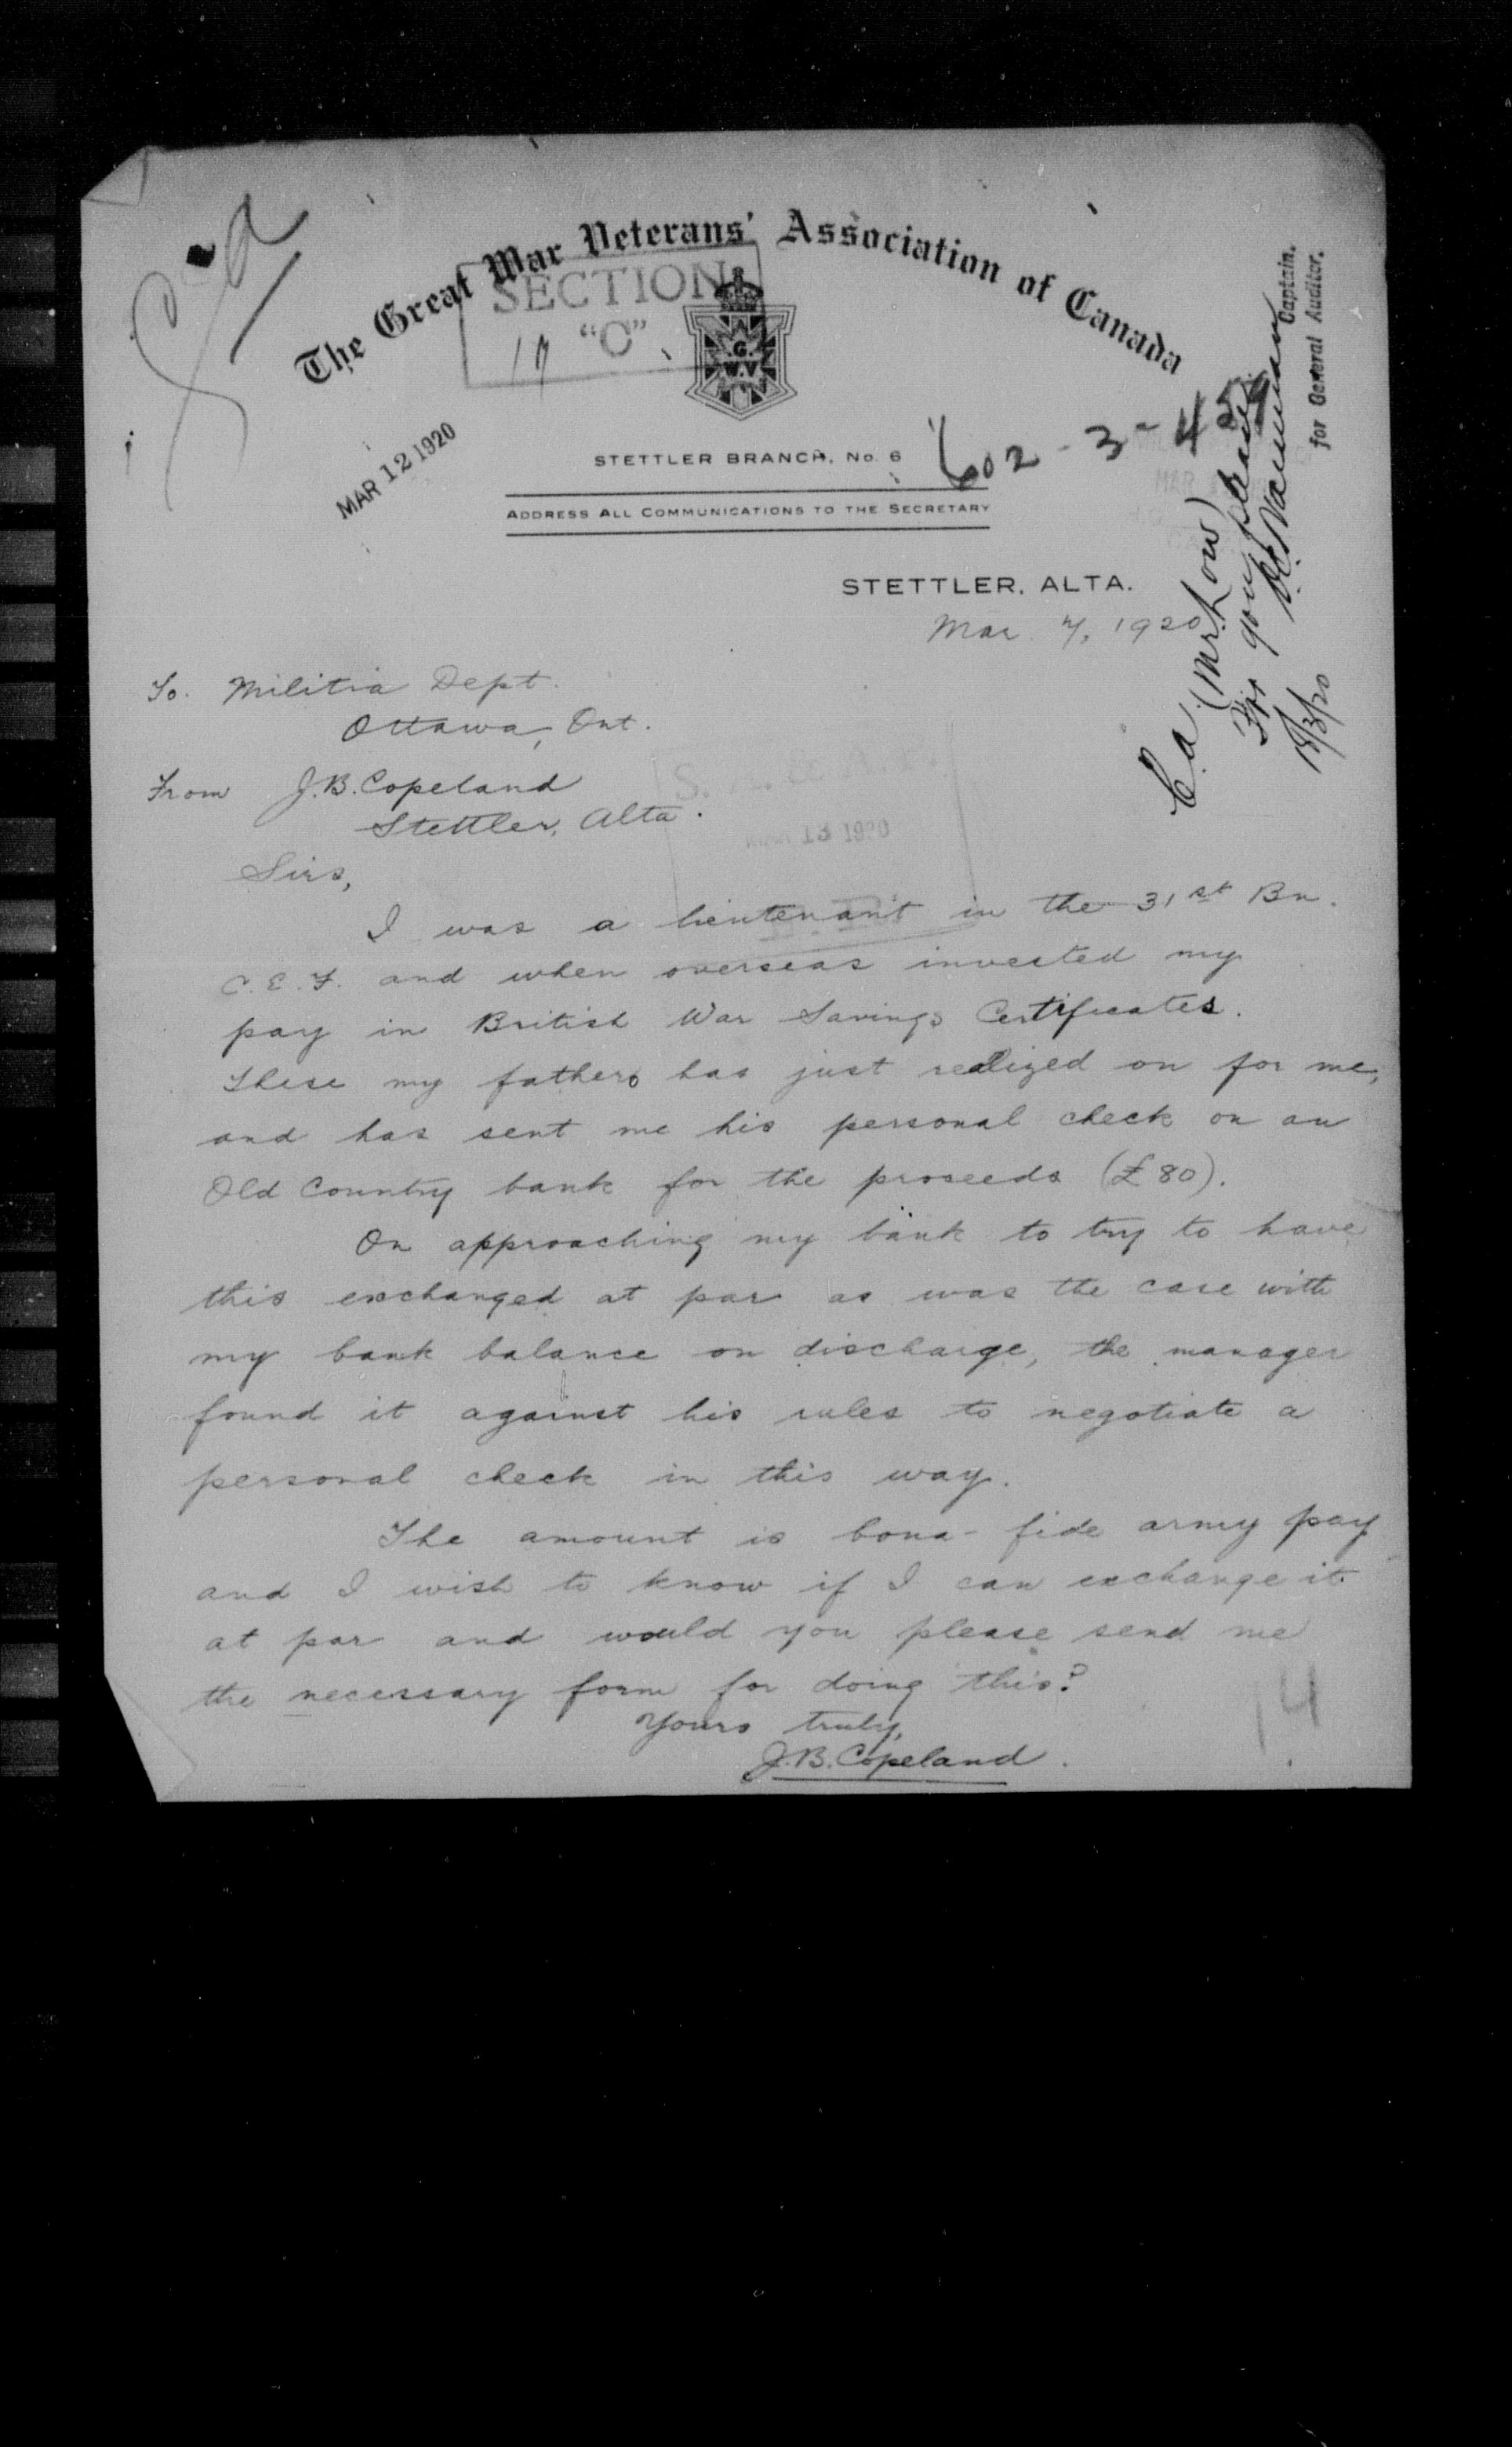 The Great War Veterans' Association of Canada
SECTION
17 "C"
G.
W.V
MAR 12 1920
STETTLER BRANCH, No. 6
602-3-459
ADDRESS ALL COMMUNICATIONS TO THE SECRETARY
STETTLER, ALTA.
Mar. 7, 1920
C.a. (Mr Low)
For you please
Captain.
for General Auditor.
13/3/20
To. Militia Dept.
Ottawa, Ont.
From J.B. Copeland
Stettler, Alta.
13 1920
Sirs,
I was a lieutenant in the 31st Bn.
C.E.F. and when overseas invested my
pay in British War Savings Certificates.
These my father has just realized on for me,
and has sent me his personal check on an
Old Country bank for the proseeds (£80).
On approaching my bank to try to have
this exchanged at par as was the case with
my bank balance on discharge, the manager
found it against his rules to negotiate a
personal check in this way.
The amount is bona-fide army pay
and I wish to know if I can exchange it
at par and would you please send me
the necessary form for doing this?
Yours truly,
J.B. Copeland.
14